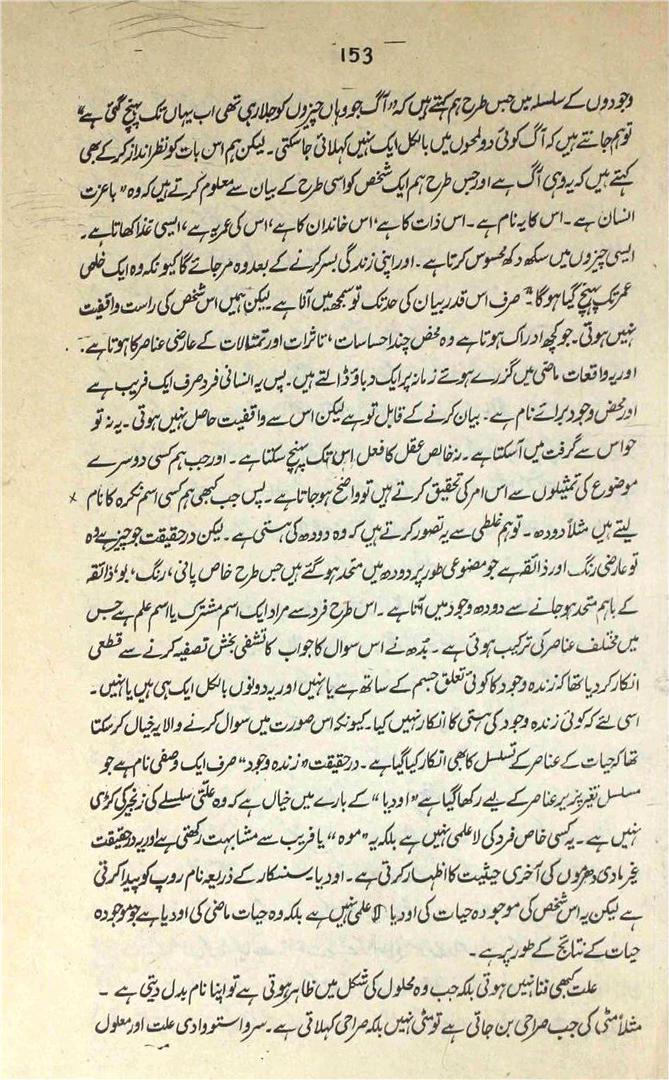 153
وجودوں کے سلسلہ میں جس طرح ہم کہتے ہیں کہ "آگ جو وہاں چیزوں کو جلا رہی تھی اب یہاں تک پہنچ گئی ہے"
تو ہم جانتے ہیں کہ آگ کوئی دو لمحوں میں بالکل ایک نہیں کہلائی جا سکتی۔ لیکن ہم اس بات کو نظر انداز کر کے بھی
کہتے ہیں کہ یہ وہی آگ ہے اور جس طرح ہم ایک شخص کو اسی طرح کے بیان سے معلوم کرتے ہیں کہ وہ "باعزت
انسان ہے۔ اس کا یہ نام ہے۔ اس ذات کا ہے، اس خاندان کا ہے، اس کی عمر یہ ہے، ایسی غذا کھاتا ہے۔
ایسی چیزوں میں سکھ دکھ محسوس کرتا ہے۔ اور اپنی زندگی بسر کرنے کے بعد وہ مر جائے گا کیونکہ وہ ایک خاص
عمر تک پہنچ گیا ہوگا"۔ صرف اس قدر بیان کی حد تک تو سمجھ میں آتا ہے۔ لیکن ہمیں اس شخص کی راست واقفیت
نہیں ہوتی۔ جو کچھ ادراک ہوتا ہے وہ محض چند احساسات، تاثرات اور تمثالات کے عارضی عناصر کا ہوتا ہے۔
اور یہ واقعات ماضی میں گزرے ہوئے زمانہ پر ایک دباؤ ڈالتے ہیں۔ پس یہ انسانی فرد صرف ایک فریب ہے
اور محض وجود برائے نام ہے۔ بیان کرنے کے قابل تو ہے لیکن اس سے واقفیت حاصل نہیں ہوتی۔ یہ نہ تو
حواس سے گرفت میں آ سکتا ہے۔ نہ خالص عقل کا فعل اس تک پہنچ سکتا ہے۔ اور جب ہم کسی دوسرے
موضوع کی تمثیلوں سے اس امر کی تحقیق کرتے ہیں تو واضح ہو جاتا ہے۔ پس جب کبھی ہم کسی اسم نکرہ کا نام
لیتے ہیں مثلاً دودھ۔ تو ہم غلطی سے یہ تصور کرتے ہیں کہ وہ دودھ کی ہستی ہے۔ لیکن درحقیقت جو چیز ہے وہ
تو عارضی رنگ اور ذائقہ ہے جو مصنوعی طور پر دودھ میں متحد ہو گئے ہیں جس طرح خاص پانی، رنگ، بو، ذائقہ
کے باہم متحد ہو جانے سے دودھ وجود میں آتا ہے۔ اس طرح فرد سے مراد ایک اسم مشترک یا اسم علم ہے جس
میں مختلف عناصر کی ترکیب ہوئی ہے۔ بدھ نے اس سوال کا جواب کا تشفی بخش تصفیہ کرنے سے قطعی
انکار کر دیا تھا کہ زندہ وجود کا کوئی تعلق جسم کے ساتھ ہے یا نہیں اور یہ دونوں بالکل ایک ہی ہیں یا نہیں۔
اسی لئے کہ کوئی زندہ وجود کی ہستی کا انکار نہیں کیا۔ کیونکہ اس صورت میں سوال کرنے والا یہ خیال کر سکتا
تھا کہ حیات کے عناصر کے تسلسل کا بھی انکار کیا گیا ہے۔ درحقیقت "زندہ وجود" صرف ایک وصفی نام ہے جو
مسلسل تغیر پذیر عناصر کے لیے رکھا گیا ہے "اودیا" کے بارے میں خیال ہے کہ وہ علتی سلسلے کی زنجیر کی کڑی
نہیں ہے۔ یہ کسی خاص فرد کی لاعلمی نہیں ہے بلکہ یہ "موہ" یا فریب سے مشابہت رکھتی ہے اور یہ درحقیقت
غیر مادی دھرموں کی آخری حیثیت کا اظہار کرتی ہے۔ اودیا۔ سنسکار کے ذریعہ نام روپ کو پیدا کرتی
ہے لیکن یہ اس شخص کی موجودہ حیات کی اودیا لاعلمی نہیں ہے بلکہ وہ حیات ماضی کی اودیا ہے جو موجودہ
حیات کے نتائج کے طور پر ہے۔
علت کبھی فنا نہیں ہوتی بلکہ جب وہ محلول کی شکل میں ظاہر ہوتی ہے تو اپنا نام بدل دیتی ہے۔
مثلاً مٹی کی جب صراحی بن جاتی ہے تو مٹی نہیں بلکہ صراحی کہلاتی ہے۔ سرواستووادی علت اور معلول